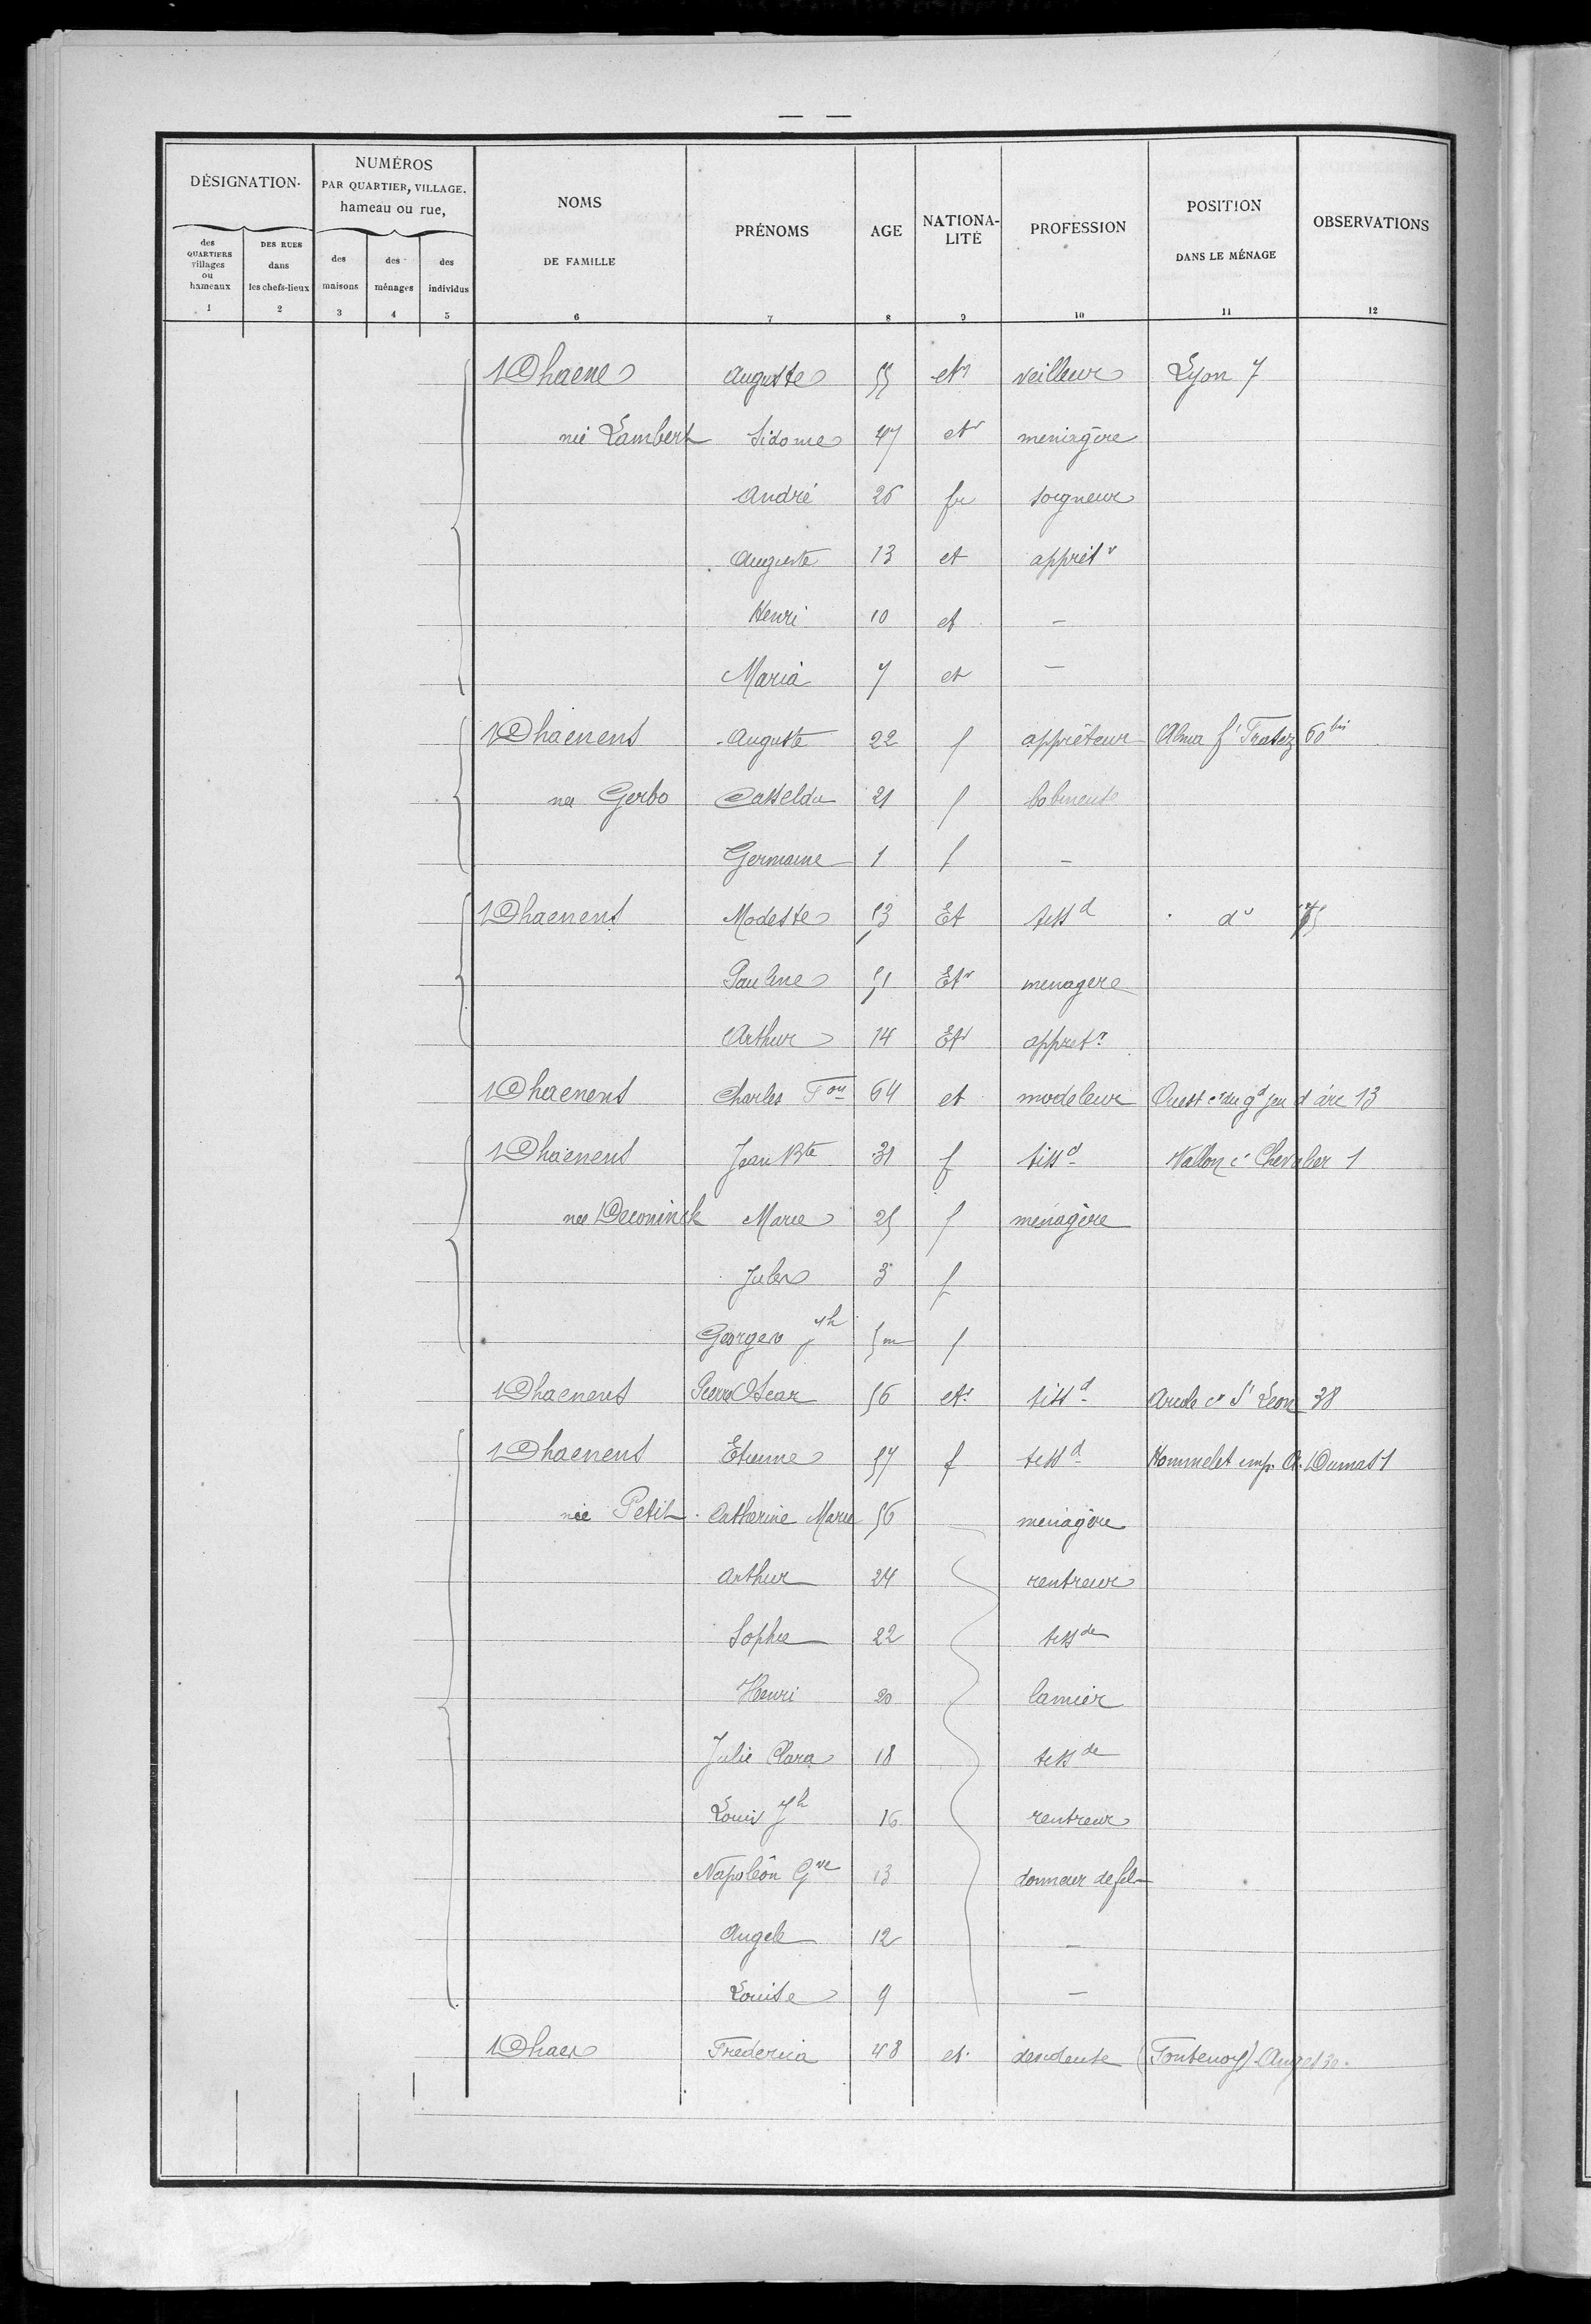 DÉSIGNATION
NUMÉROS
PAR QUARTIER, VILLAGE.
hameau ou rue,
NOMS
DE FAMILLE
PRÉNOMS
AGE
NATIONA-
LITÉ
PROFESSION
POSITION
DANS LE MÉNAGE
OBSERVATIONS
des
QUARTIERS
villages
ou
hameaux
DES RUES
dans
les chefs-lieux
des
maisons
des
ménages
des
individus
1 2 3 4 5 6 7 8 9 10 11 12
Dhaene Auguste 55 etr veilleur Lyon 7
née Lambert Sidonie 47 etr ménagère
André 26 fr soigneur
Auguste 13 et apprêtr
Henri 10 et —
Maria 7 et —
Dhaenens Auguste 22 f apprêteur Alma ft Frasez 60 bis
née Gerbo 21 f bobineuse
Germaine 1 f —
Dhaenens Modeste 53 Et tissd do
Pauline 51 Etr menagere
Arthur 14 Etr appretr
Dhaenens Charles Fois 64 et modeleur Ouest du gd jeu d'arc 13
Dhaenens Jean Bte 31 f tissd Wallon cr Chevalier 1
née Deconinck Marie 25 f ménagère
Jules 3 f
Georges Jh 5m f
Dhaenens Pierre Oscar 56 etr tissd Arcole cr St Leon 38
Dhaenens Etienne 57 f tissd Hommelet imp. A. Dumas 1
née Petit Catherine Marie 56 ménagère
Arthur 24 rentreur
Sophie 22 tissde
Henri 20 lamier
Julie Clara 18 tissde
Louis Jh 16 rentreur
Napoléon Gve 13 donneur de fil
Angele 12 —
Louise 9 —
Dhaer Frederica 48 et. (Fontenoy)